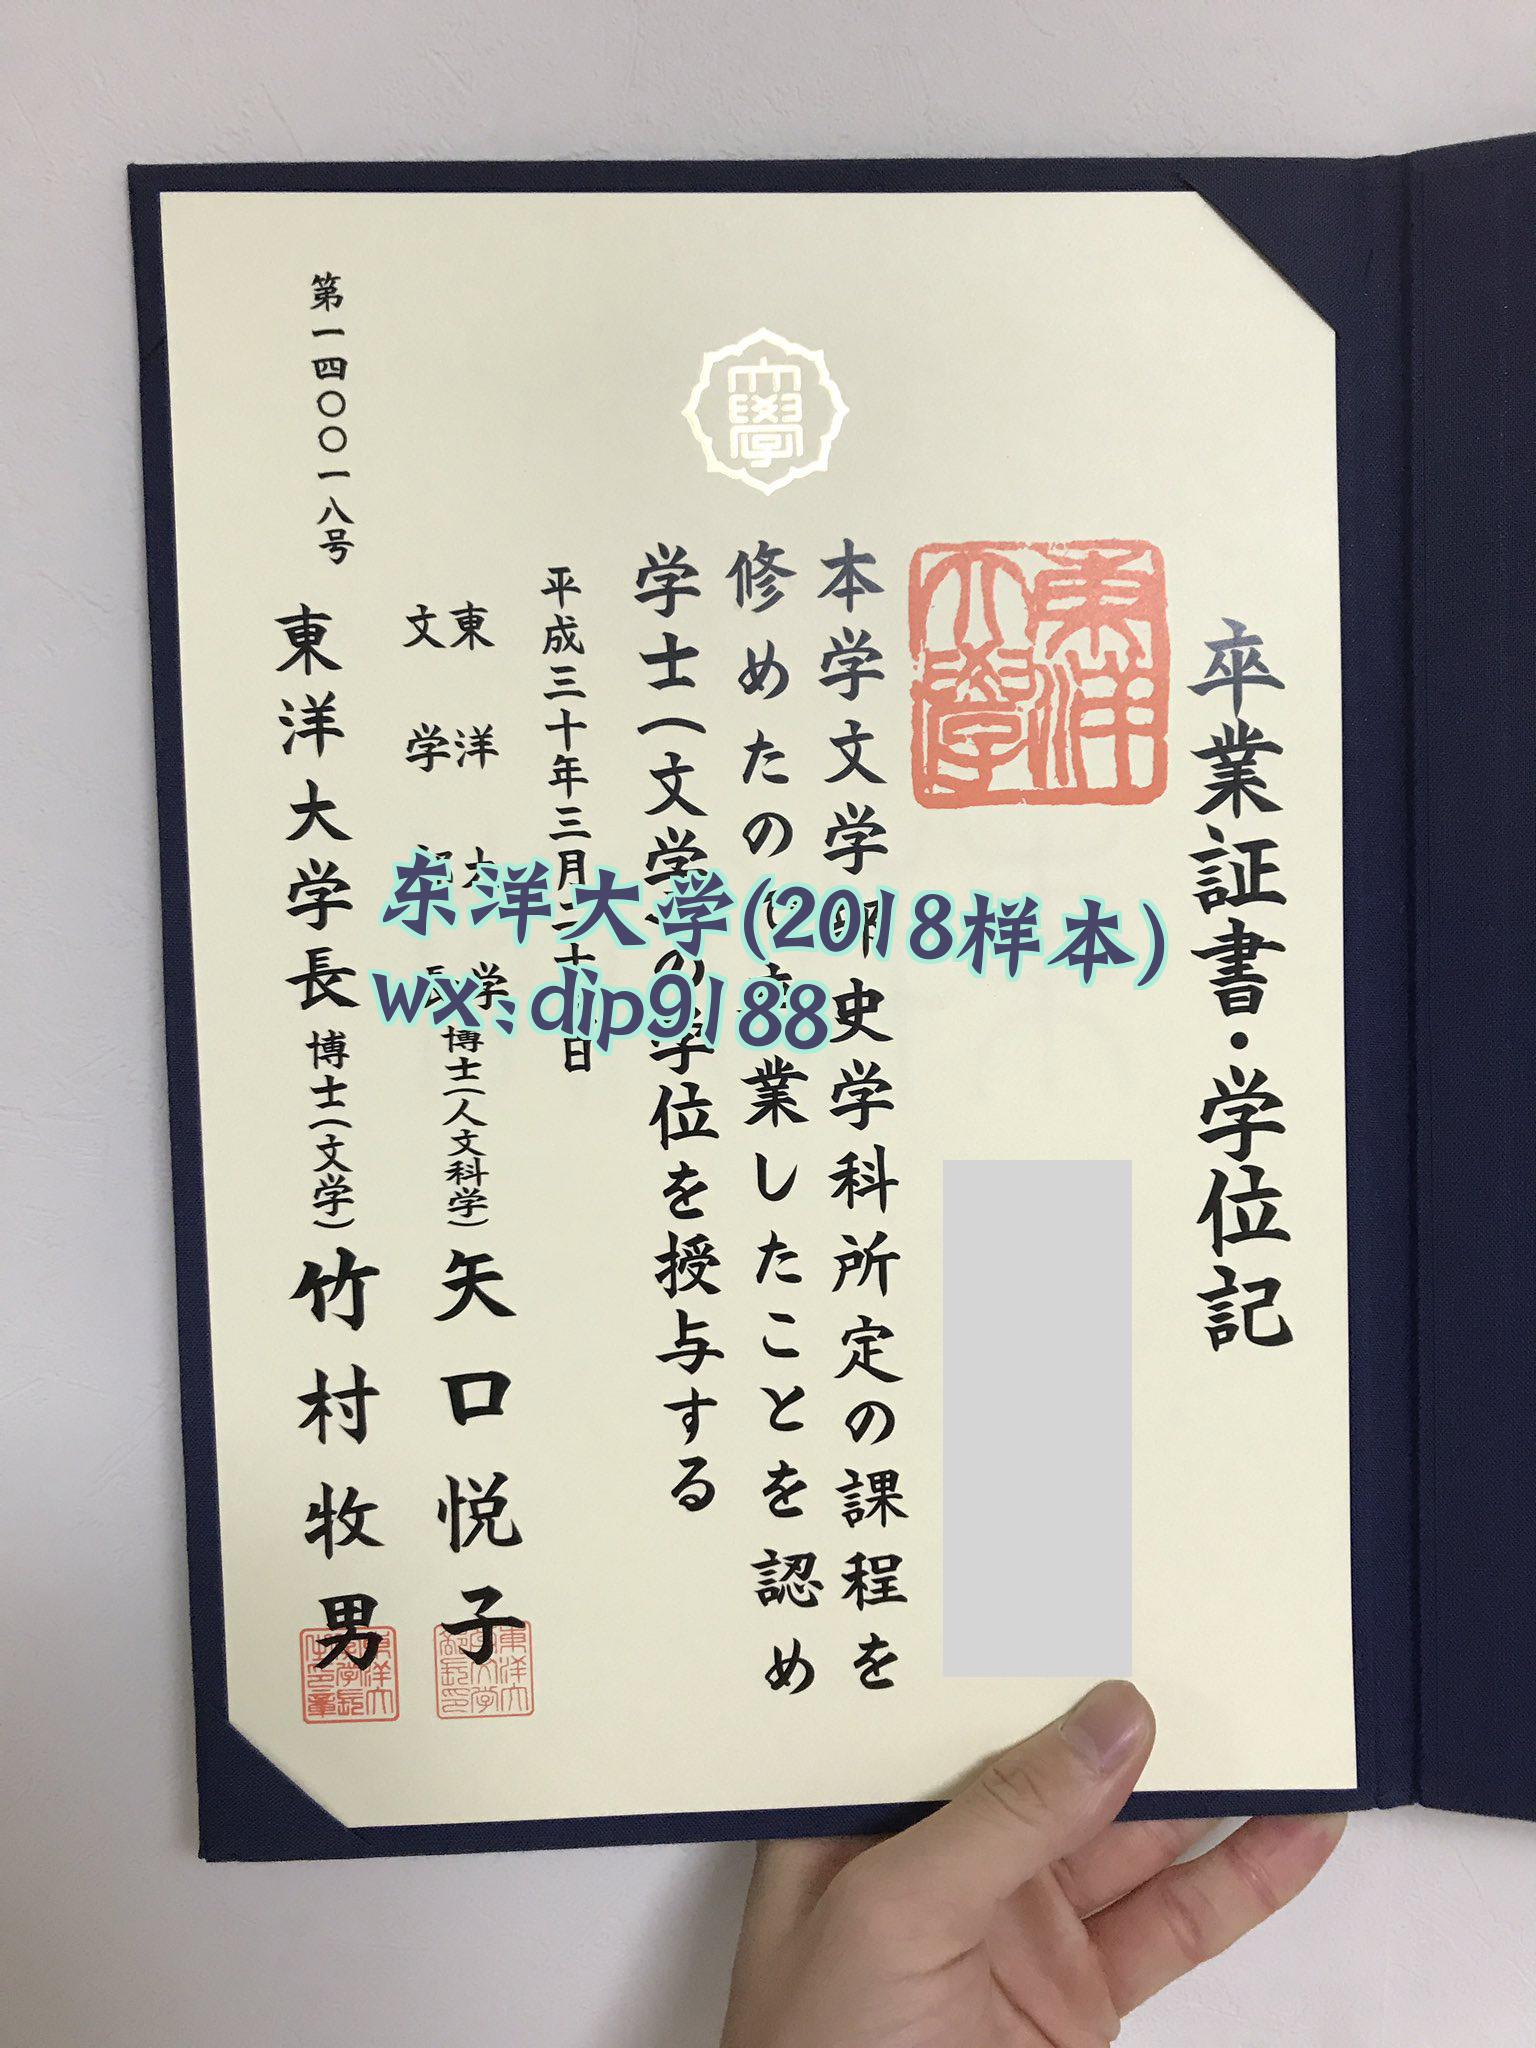 卒業証書・学位記
東洋大學
大學
本学文学部史学科所定の課程を
修めたので卒業したことを認め
学士(文学)の学位を授与する
平成三十年三月二十 日
東洋大学
文学部長
博士(人文科学)
矢口悦子
東洋大学長
博士(文学)
竹村牧男
第一四〇〇一八号
东洋大学(2018样本)
wx:dip9188